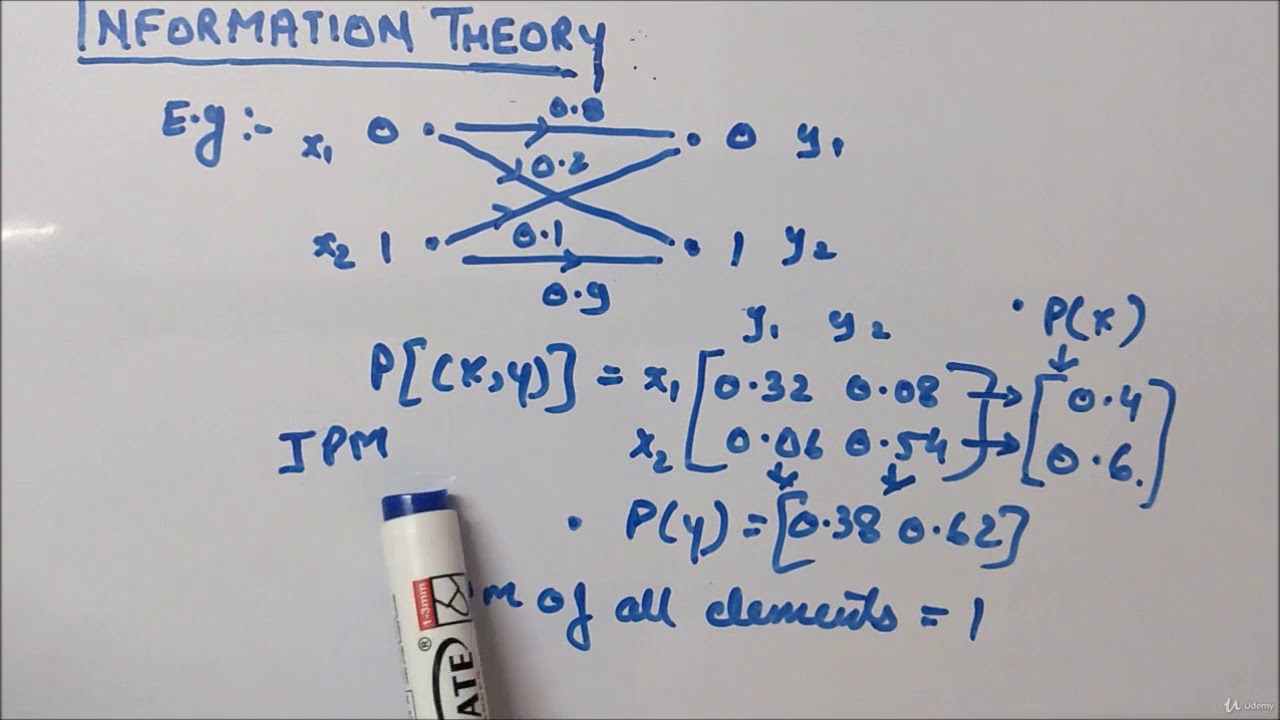 INFORMATION THEORY
E.g :- x₁ 0 0.8 0 y₁
0.2
x₂ 1 0.1 1 y₂
0.9
y₁ y₂ · P(x)
P[(x,y)] = x₁ [0.32 0.08] → [0.4]
JPM x₂ [0.06 0.54] → [0.6.]
· P(y) = [0.38 0.62]
of all elements = 1
1-3mm
®
ATE
Udemy